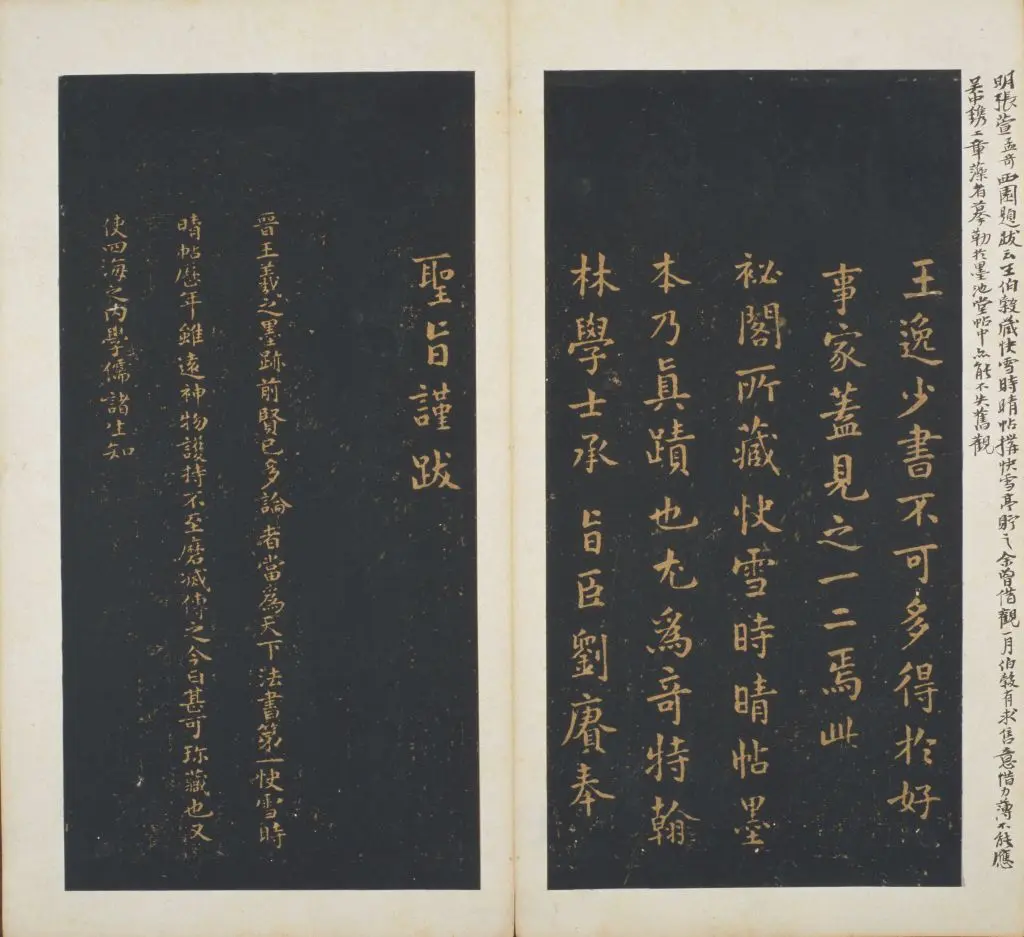 明張萱孟奇西園題跋云王伯穀藏快雪時晴帖搆快雪亭貯之余曾借觀一月伯穀有求信意惜力薄不能應
吴中鐫工章藻者摹勒於墨池堂帖中亦能不失舊觀
王逸少書不可多得於好
事家蓋見之一二焉此
祕閣所藏快雪時晴帖墨
本乃真蹟也尤爲奇特翰
林學士承旨臣劉賡奉
聖旨謹跋
晉王羲之墨跡前賢已多論者當為天下法書第一快雪時
晴帖歷年雖遠神物護持不至磨滅傳之今日甚可珎藏也又
使四海之內學儒諸生知